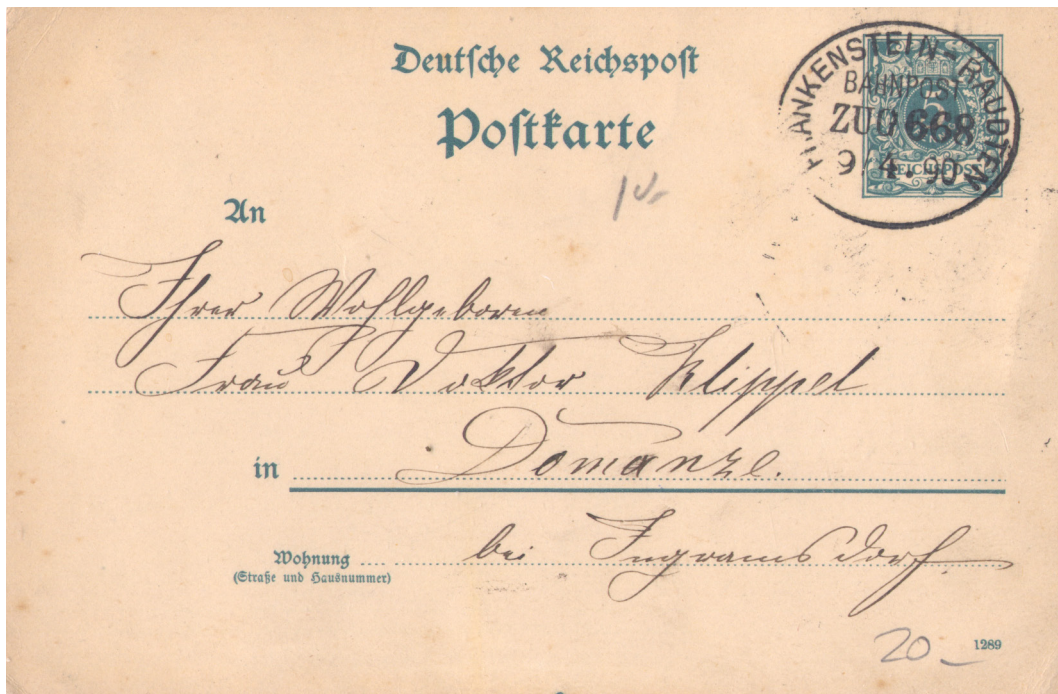 Deutsche Reichspost
Postkarte
FRANKENSTEIN-RAUDTEN
BAHNPOST
ZUG 668
9/4.90
5
REICHSPOST
An
Ihrer Wohlgeboren
Frau Doktor Klippel
in Domanze.
Wohnung bei Ingramsdorf.
(Straße und Hausnummer)
20_
1289